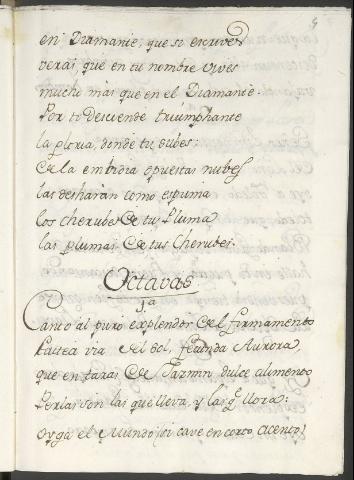 9
en Diamante, que si escrives
verás, que en tu nombre vives
mucho más que en el Diamante.
Por ti desciende triumphante
la gloria, donde tu subes:
de la embidia opuestas nubes
las desharán como espuma
los cherubes de tu pluma
las plumas de tus Cherubes.
Octavas
1.a
Canto al puro explendor del firmamento
Lactea via del Sol, fecunda Aurora,
que en tazas de Jazmin dulce alimento
Perlas son las que lleva, y las q̃ llora:
oyga el Mundo (si cave en corto acento)